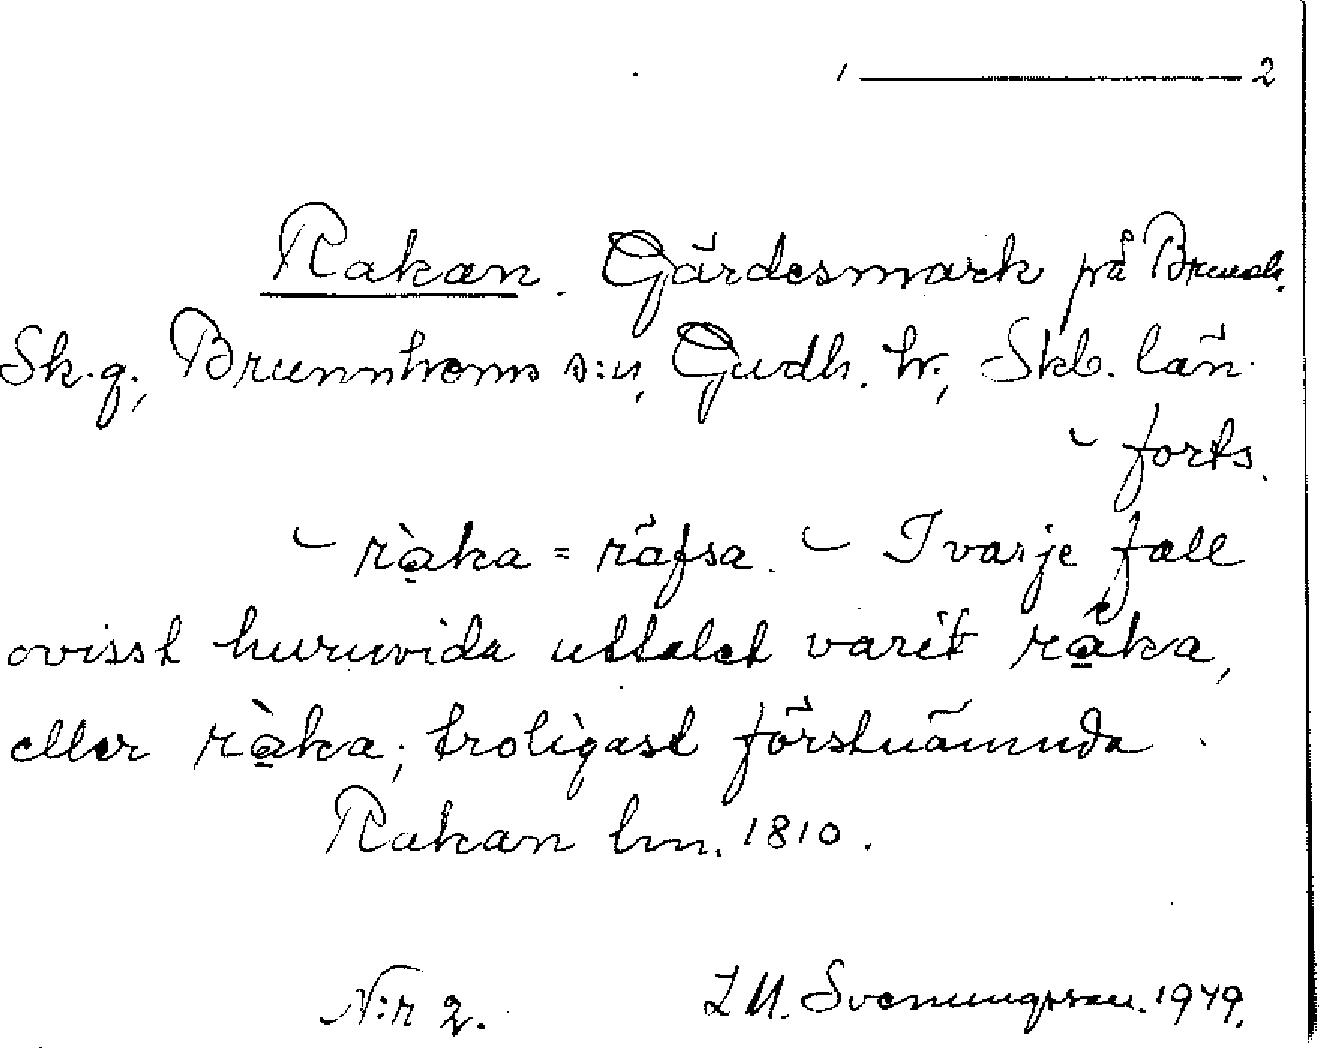 1 ———— 2
Rakan. Gärdesmark på
Sk.g., Brunnhems s:n, Gudh. hr, Skb. län.
– forts.
– ràka = räfsa. – I varje fall
ovisst huruvida uttalet varit ráka,
eller ràka; troligast förstnämnda.
Rakan lm. 1810.
N:r 2. L M. Svenungsson. 1949.